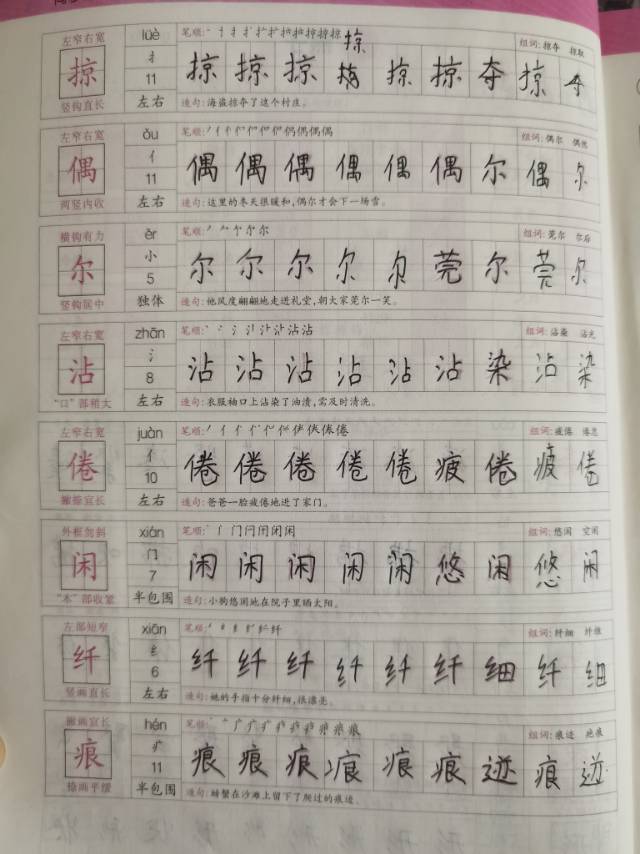 左窄右宽 lüè 笔顺: 组词:掠夺 掠取
掠 扌 掠 掠 掠 掠 掠 夺 掠 夺
11
竖钩直长 左右 造句:海盗掠夺了这个村庄。
左窄右宽 ǒu 笔顺: 组词:偶尔 偶然
偶 亻 偶 偶 偶 偶 偶 偶 尔 偶 尔
11
两竖内收 左右 造句:这里的冬天很暖和,偶尔才会下一场雪。
横钩有力 ěr 笔顺: 组词:莞尔 尔后
尔 小 尔 尔 尔 尔 尔 莞 尔 莞 尔
5
竖钩居中 独体 造句:他风度翩翩地走进礼堂,朝大家莞尔一笑。
左窄右宽 zhān 笔顺: 组词:沾染 沾光
沾 氵 沾 沾 沾 沾 沾 沾 染 沾 染
8
“口”部稍大 左右 造句:衣服袖口上沾染了油渍,需及时清洗。
左窄右宽 juàn 笔顺: 组词:疲倦 倦怠
倦 亻 倦 倦 倦 倦 倦 疲 倦 疲 倦
10
撇捺宜长 左右 造句:爸爸一脸疲倦地进了家门。
外框勿斜 xián 笔顺: 组词:悠闲 空闲
闲 门 闲 闲 闲 闲 闲 悠 闲 悠 闲
7
“木”部收紧 半包围 造句:小狗悠闲地在院子里晒太阳。
左部短窄 xiān 笔顺: 组词:纤细 纤维
纤 纟 纤 纤 纤 纤 纤 纤 细 纤 细
6
竖画直长 左右 造句:她的手指十分纤细,很漂亮。
撇画宜长 hén 笔顺: 组词:痕迹 疤痕
痕 疒 痕 痕 痕 痕 痕 痕 迹 痕 迹
11
捺画平缓 半包围 造句:螃蟹在沙滩上留下了爬过的痕迹。